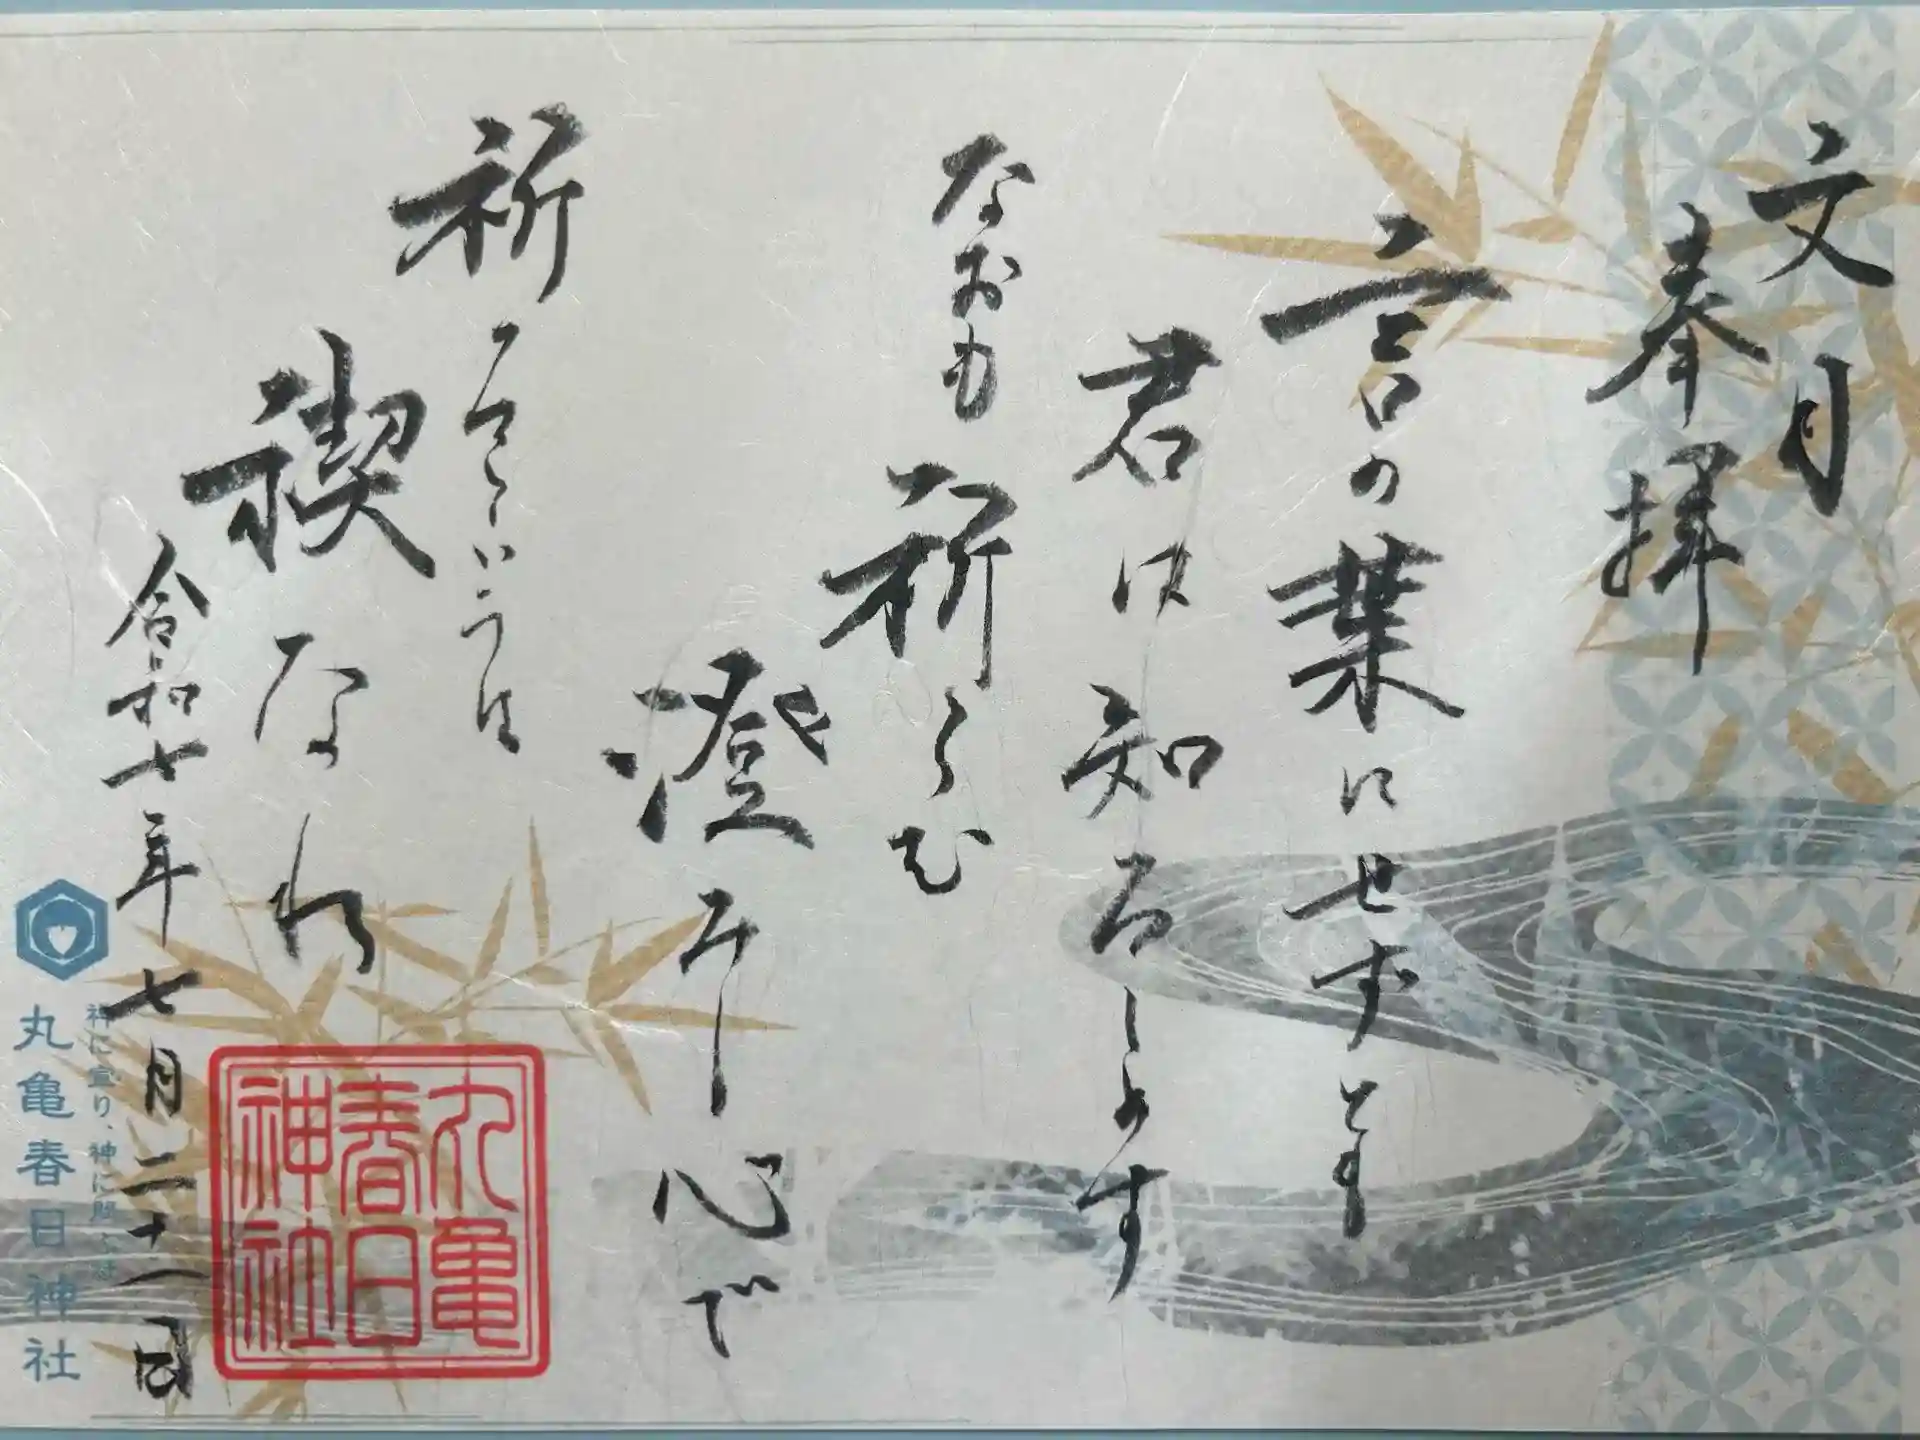 文月
奉拝
言の葉にせずとも
君は知ろしめす
なおも祈らむ
澄みし心で
祈 いうは
禊なれ
令和七年七月二十八日
丸亀
春日
神社
神に宣り、神に
丸亀春日神社